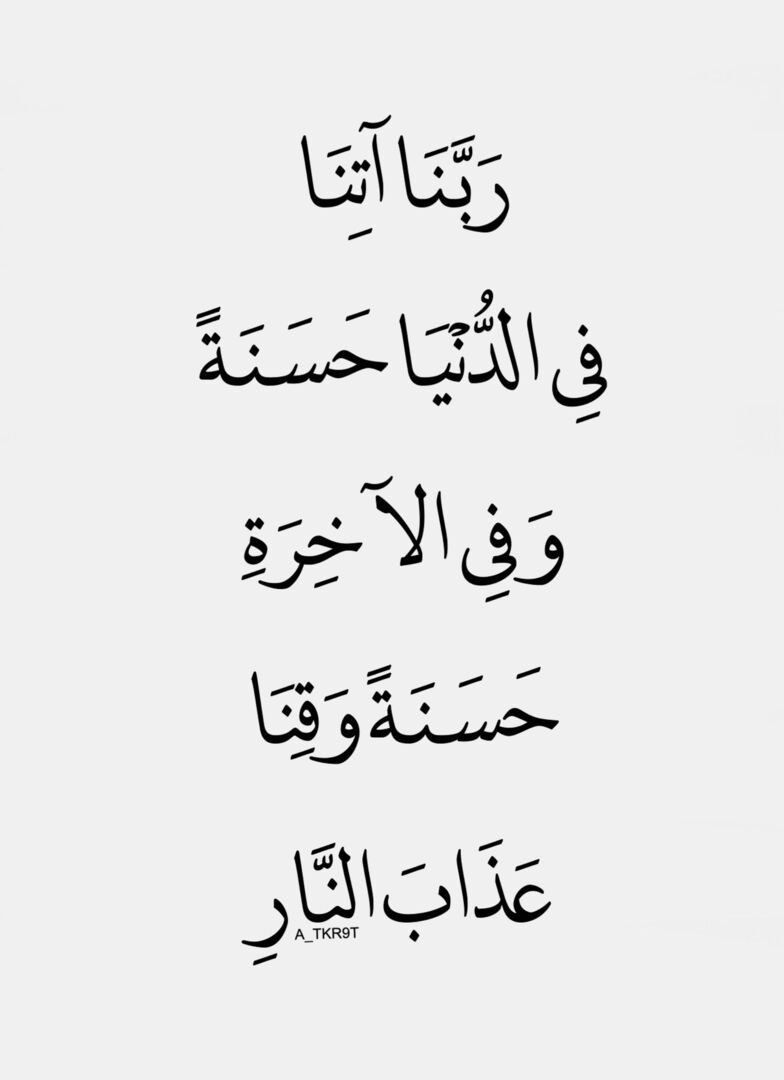 رَبَّنَا آتِنَا
فِي الدُّنْيَا حَسَنَةً
وَفِي الآخِرَةِ
حَسَنَةً وَقِنَا
عَذَابَ النَّارِ
A_TKR9T